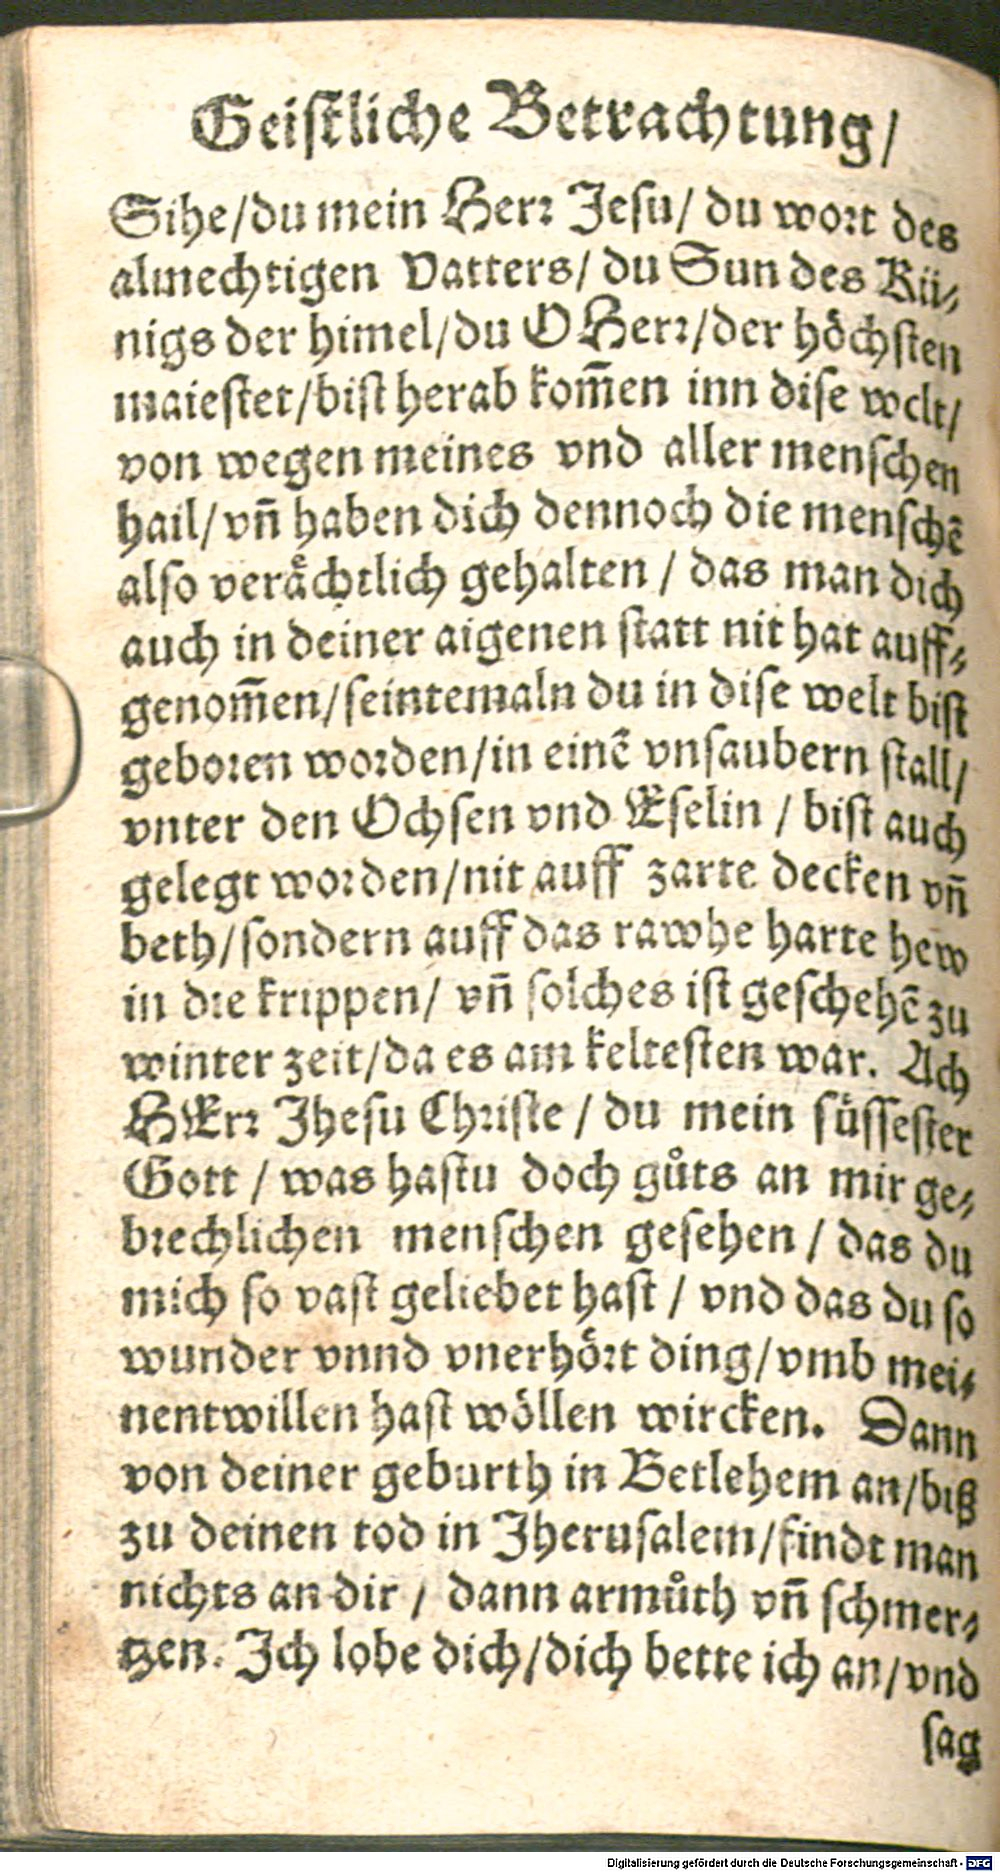 Geistliche Betrachtung/
Sihe/du mein Herr Jesu/ du wort des
almechtigen Vatters/ du Sun des Kü⸗
nigs der himel/du O Herr/der höchsten
maiestet/bist herab kom̄en inn dise welt/
von wegen meines vnd aller menschen
hail/vn̄ haben dich dennoch die menschē
also verächtlich gehalten / das man dich
auch in deiner aigenen statt nit hat auff⸗
genom̄en/seintemaln du in dise welt bist
geboren worden/in einē vnsaubern stall/
vnter den Ochsen vnd Eselin / bist auch
gelegt worden/nit auff zarte decken vn̄
beth/sondern auff das rawhe harte hew
in die krippen/ vn̄ solches ist geschehē zu
winter zeit/da es am keltesten war. Ach
HErr Jhesu Christe / du mein süssester
Gott / was hastu doch gůts an mir ge⸗
brechlichen menschen gesehen / das du
mich so vast geliebet hast / vnd das du so
wunder vnnd vnerhört ding/vmb mei⸗
nentwillen hast wöllen wircken. Dann
von deiner geburth in Betlehem an/biß
zu deinen tod in Jherusalem/findt man
nichts an dir / dann armůth vn̄ schmer⸗
tzen. Ich lobe dich/dich bette ich an/vnd
sag
Digitalisierung gefördert durch die Deutsche Forschungsgemeinschaft - DFG